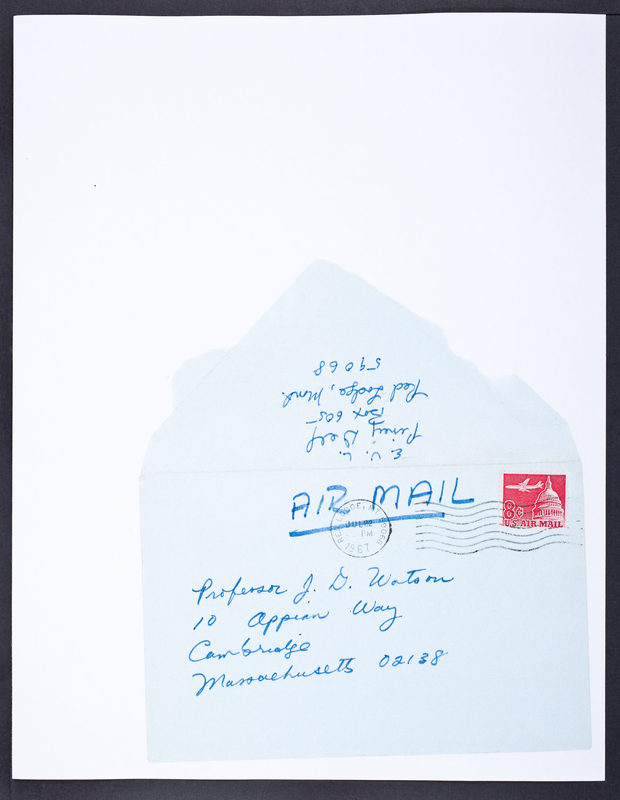 E. V. L.
Piney Dell
Box 605
Red Lodge, Mont.
59068
AIR MAIL
RED LODGE, M 59068
JUL
PM
1967
8¢
U.S AIR MAIL
Professor J. D. Watson
10 Appian Way
Cambridge
Massachusetts 02138